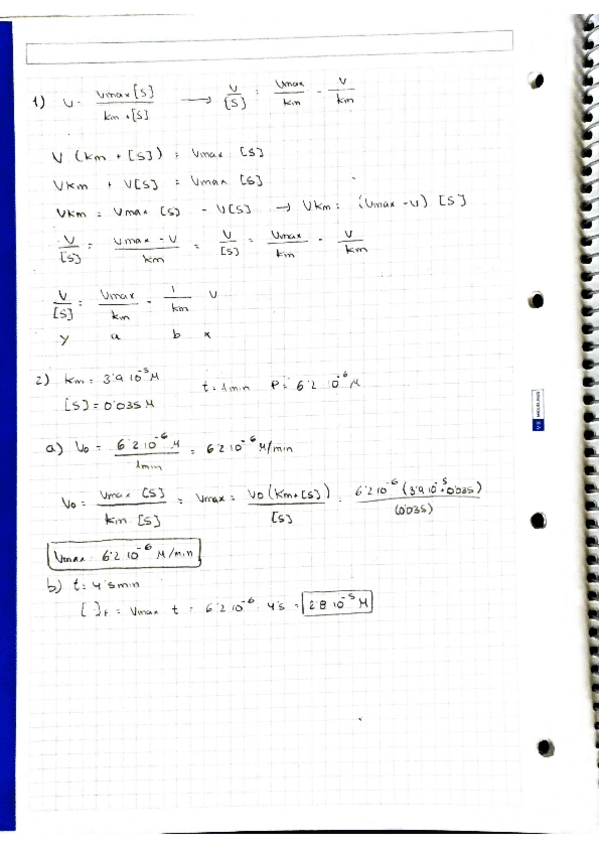 1) V = Vmax [S] / Km + [S] → V / [S] = Vmax / Km - V / Km
V (Km + [S]) = Vmax [S]
VKm + V[S] = Vmax [S]
VKm = Vmax [S] - V[S] → VKm = (Vmax - V) [S]
V / [S] = Vmax - V / Km = V / [S] = Vmax / Km - V / Km
V / [S] = Vmax / Km - 1 / Km V
y a b x
2) Km = 3'9 10⁻⁵ M t = 1min P = 6'2 10⁻⁶ M
[S] = 0'035 M
a) V₀ = 6'2 10⁻⁶ M / 1min = 6'2 10⁻⁶ M/min
V₀ = Vmax [S] / Km [S] = Vmax = V₀ (Km + [S]) / [S] = 6'2 10⁻⁶ (3'9 10⁻⁵ + 0'035) / (0'035)
Vmax = 6'2 10⁻⁶ M/min
b) t = 4'5min
[ ]F = Vmax t = 6'2 10⁻⁶ · 4'5 = 2'8 10⁻⁵ M